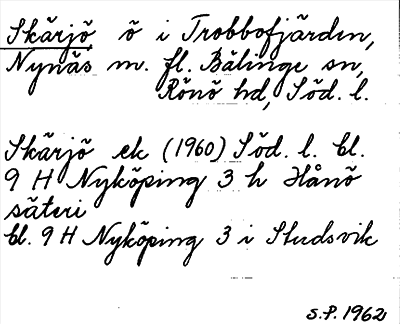 Skärjö ö i Trobbofjärden,
Nynäs m. fl. Bälinge sn,
Rönö hd, Söd. l.
Skärjö ek (1960) Söd. l. bl.
9 H Nyköping 3 h Hånö
säteri
bl. 9 H Nyköping 3 i Studsvik
S.P. 1962